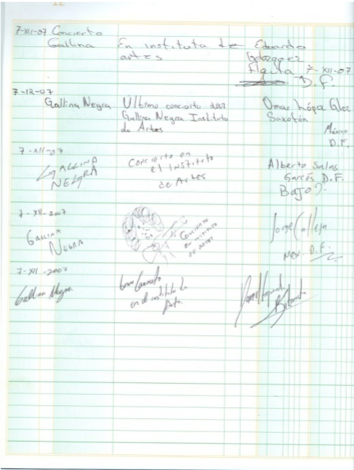 7-XII-07 Concierto
Gallina En instituta de Eduardo
artes
7-XII-07
D.F.
7-12-07
Gallina Negra Ultimo concierto
Omar López Glez
Gallina Negra Instituto
Saxofón
de Artes
México
D.F.
7-XII-07
GALLINA
NEGRA
Concierto en
el instituto
de Artes
Alberto Salas
Garcés D.F.
Bajo
7-XII-2007
GALLINA
NEGRA
CONCIERTO
EN INSTITUTO
DE ARTES
Jorge Calleja
MEX D.F.
7-XII-2007
Gallina Negra
Gran Concierto
en el instituto de
Arte